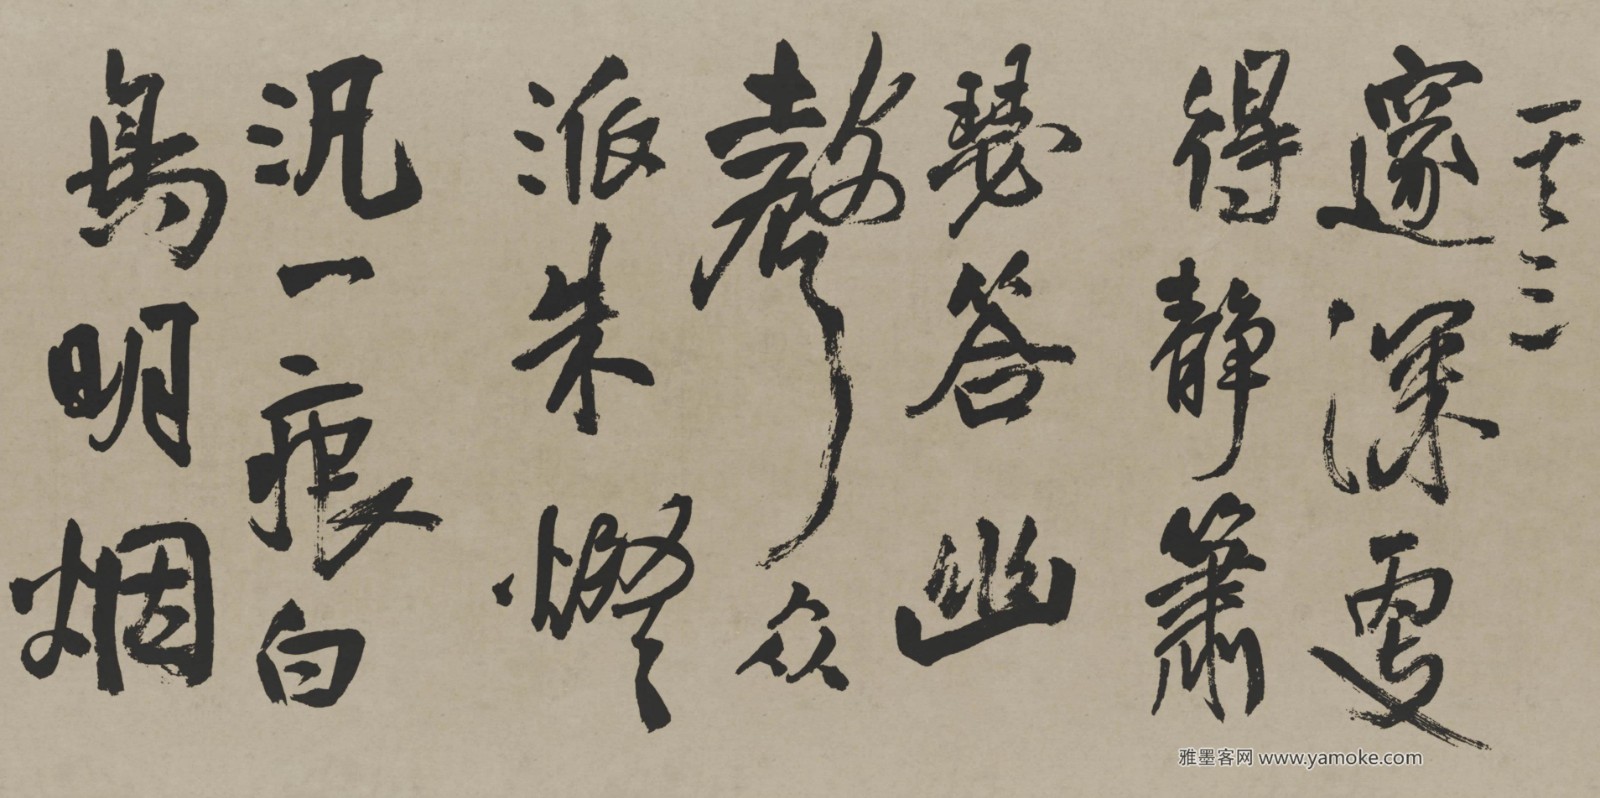 其三
邃深更
得靜簫
瑟答幽
聲众
派朱燈
汎一痕白
鳥明烟
雅墨客网 www.yamoke.com